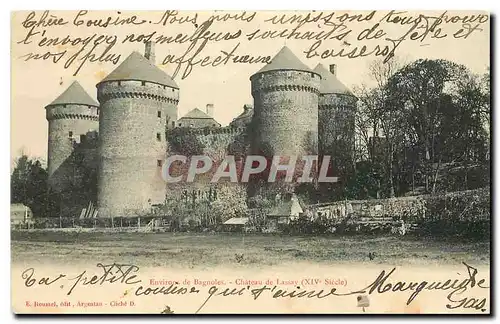 Chère Cousine. Nous nous unissons tous pour
t'envoyer nos meilleurs souhaits de fête et
nos plus affectueux baisers
CPARAMA
Environs de Bagnoles. - Château de Lassay (XIVe Siècle)
Ta petite cousine qui t'aime Marguerite
E. Roussel, édit, Argentan - Cliché D.